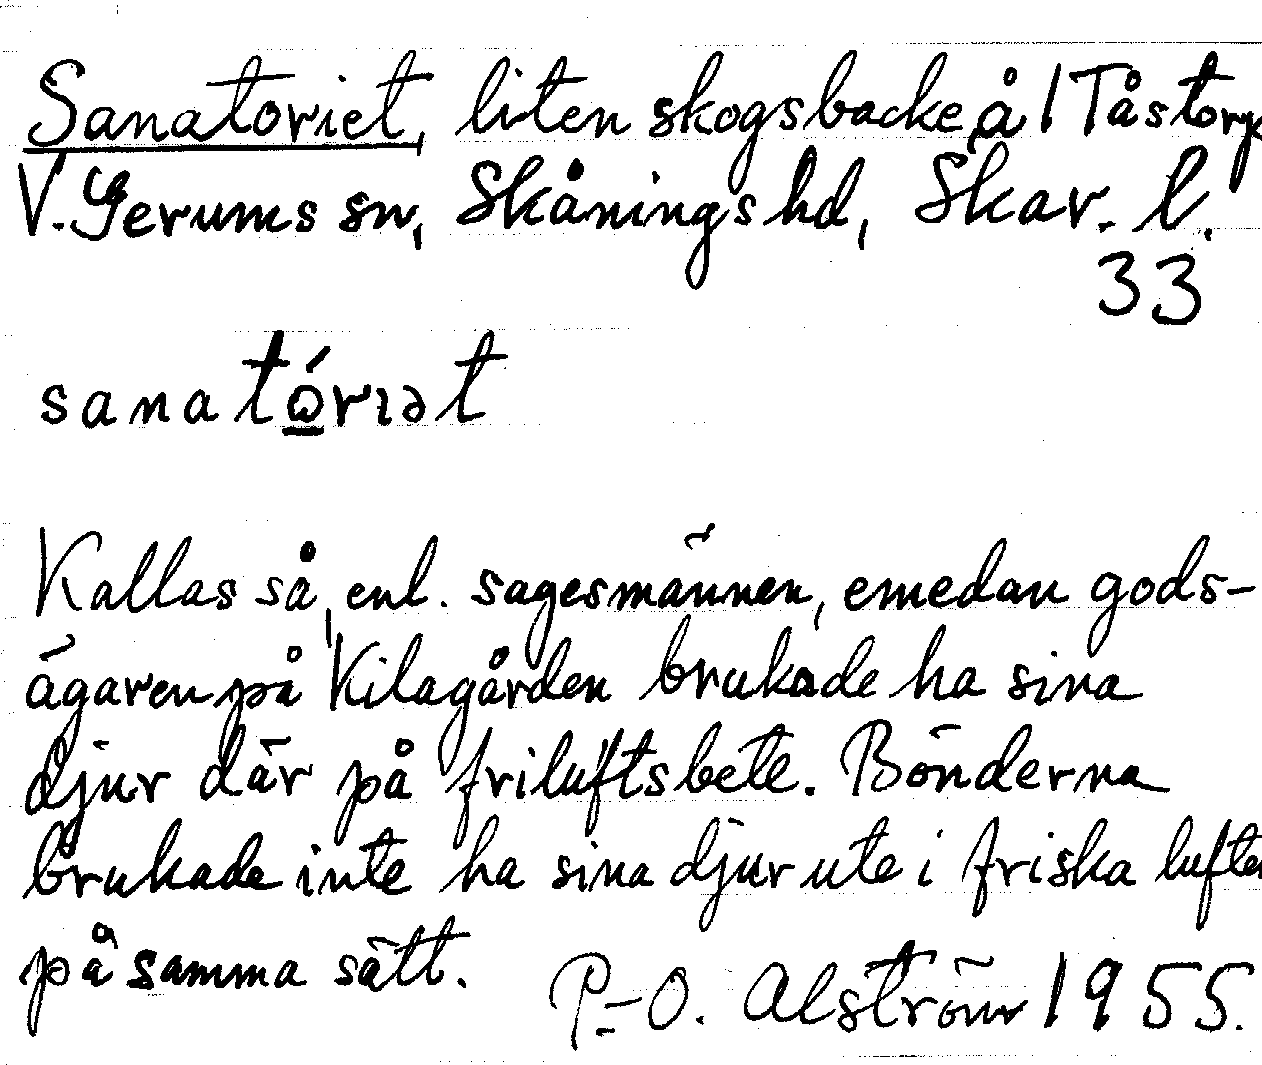 Sanatoriet, liten skogsbacke å 1 Tåstorp
V. Gerums sn, Skånings hd, Skar. l.
33
sanatớrıət
Kallas så, enl. sagesmännen, emedan gods-
ägaren på Kilagården brukade ha sina
djur där på friluftsbete. Bönderna
brukade inte ha sina djur ute i friska luften
på samma sätt.
P.-O. Alström 1955.